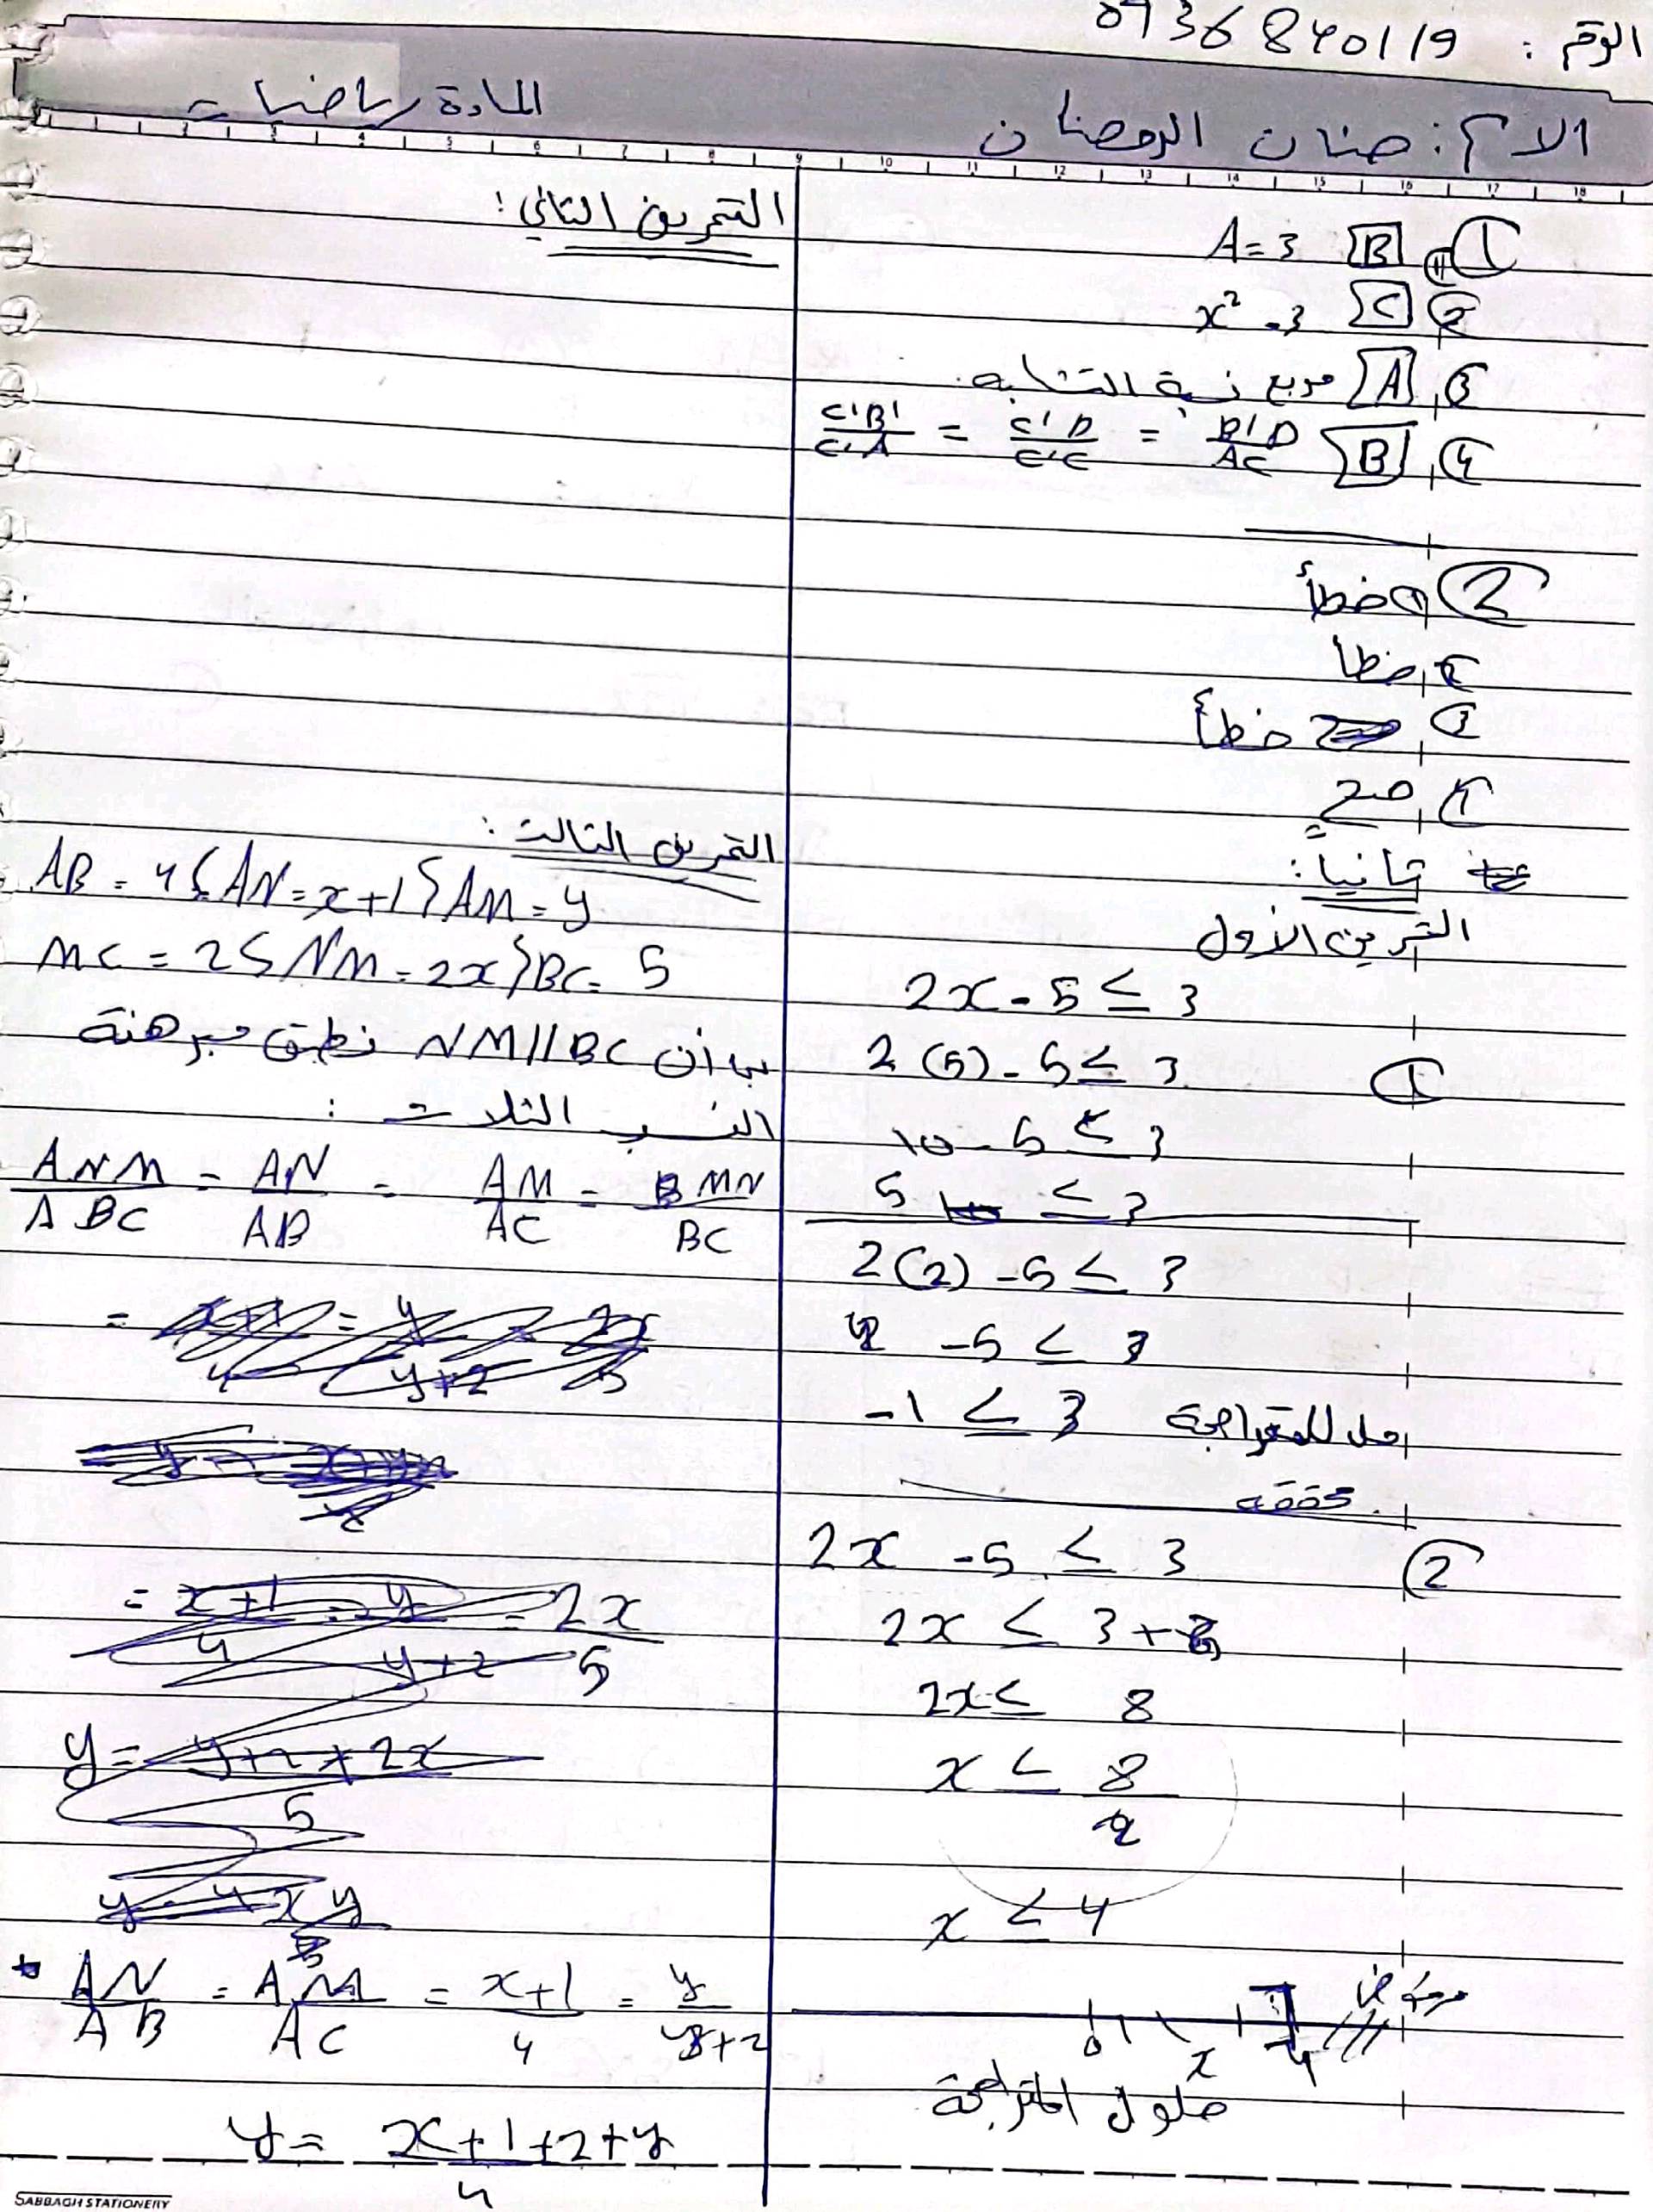 الرقم : 0936840119
الاسم : حنان الرمضان
المادة رياضيات
1) 1) B A = 3
2) C x² - 3
3) A مربع نسبة التشابه
4) B B'D/AC = C'D/C'C = C'B'/C'A
2) 1) خطأ
2) خطأ
3) خطأ
4) صح
ثانياً :
التمرين الأول
2x - 5 ≤ 3
1) 2(5) - 5 ≤ 3
10 - 5 ≤ 3
5 ≤ 3
2(2) - 5 ≤ 3
4 - 5 ≤ 3
-1 ≤ 3 حل للمتراجحة
2) 2x - 5 ≤ 3
2x ≤ 3 + 5
2x ≤ 8
x ≤ 8/2
x ≤ 4
0 x 4
حلول المتراجحة
التمرين الثاني :
التمرين الثالث :
AB = 4 { AN = x+1 { AM = y
MC = 2 { NM = 2x { BC = 5
بما أن NM//BC نطبق مبرهنة
النسب الثلاث :
ANM/ABC = AN/AB = AM/AC = MN/BC
= x+1/4 = y/y+2 = 2x/5
AN/AB = AM/AC = x+1/4 = y/y+2
y = x+1+2+y/4
SABBAGH STATIONERY